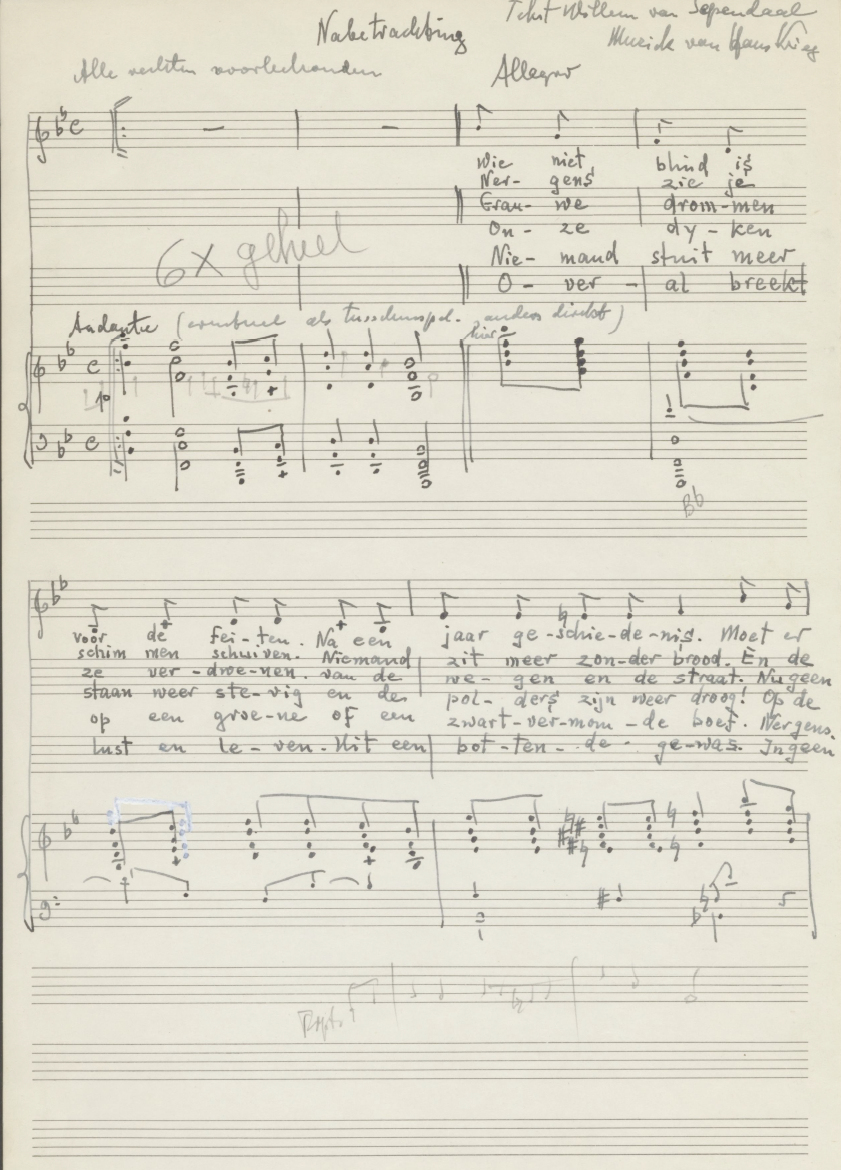 Tekst Willem van Iependaal
Nabetrachting
Muziek van Hans Krieg
Alle rechten voorbehouden
Allegro
Wie niet blind is
Ner- gens zie je
Grau- we drom-men
On- ze dy- ken
Nie- mand stuit meer
O- ver - al breekt
6x geheel
Andante (eventueel als tusschenspel. anders direkt)
hier
p
Bb
voor de fei-ten. Na een jaar ge-schie-de-nis. Moet er
schim men schuiven. Niemand zit meer zon-der brood. En de
ze ver-dwe-nen. van de we-gen en de straat. Nu geen
staan weer ste-vig en de pol-ders zijn weer droog! Op de
op een groe-ne of een zwart-ver-mom-de boef. Nergens
lust en le-ven. Uit een bot-ten-de ge-was. In geen